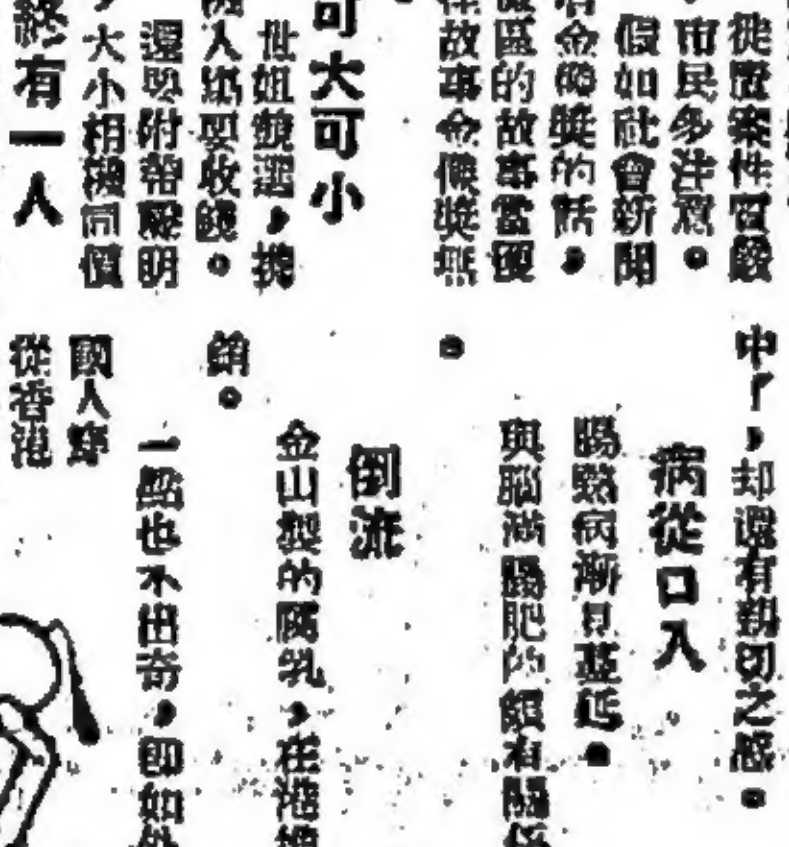 徙置案件實嚴
，市民多注意。
假如社會新聞
金像獎的話，
區的故事當便
故事金像獎無
可大可小
世姐競選，携
入場要收錢。
還要附帶聲明
，大小相機同價
終有一人
中了，却還有親切之感。
病從口入
腸熱病漸見蔓延。
與腦滿腸肥的頗有關係
。
倒流
金山製的腐乳，在港
銷。
一點也不出奇，即如外
國人穿
從香港